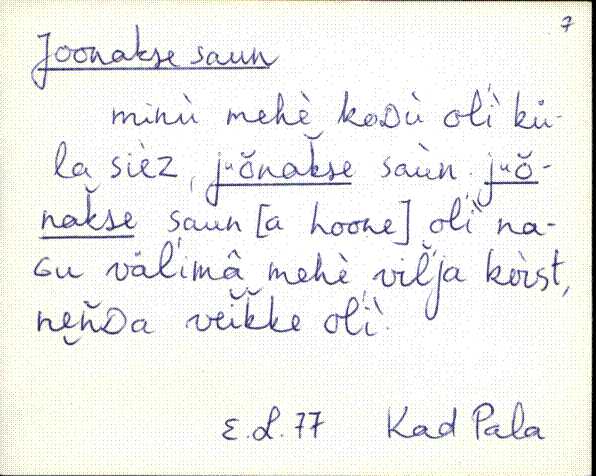 7
Joonakse saun
minù mehè koDù olì kü-
la sièz, juŏnakše saùn. juŏ-
nakše saun [a hoone] olì na-
Gu välimâ mehè vilja kòrst,
neňDa veikke olì.
E.L.77 Kad Pala